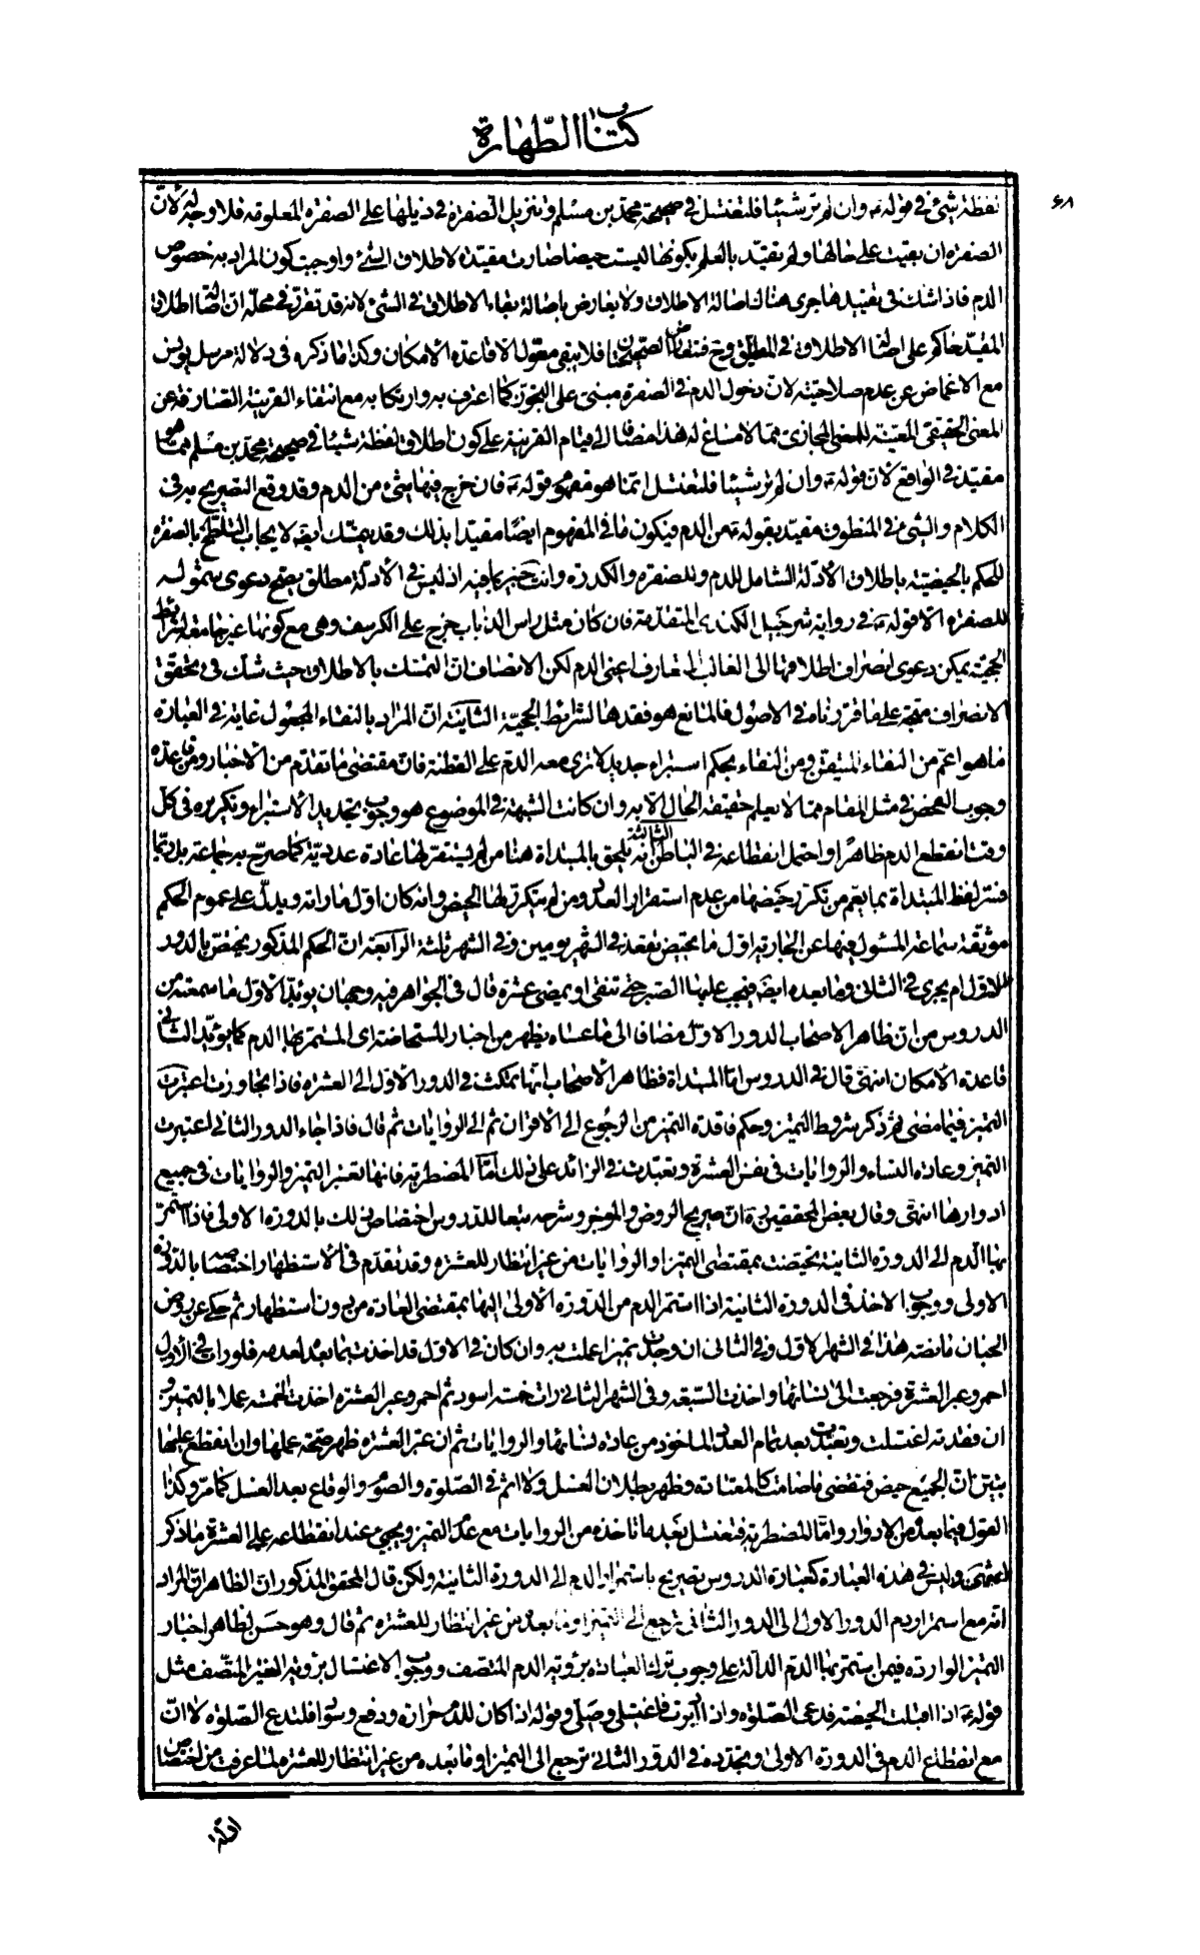 كتاب الطهارة
۶۸
لفظة شيئ في قوله ع وان لم تر شيئا فلتغتسل في صحيحة محمد بن مسلم وتنزيل الصفرة في ذيلها على الصفرة المعلومة فلا وجه له لان
الصفرة ان بقيت على حالها ولم تقيد بالعلم بكونها ليست حيضا صارت مقيدة لاطلاق الشئ واوجبت كون المراد به خصوص
الدم فاذا شك في تقييدها جرى هناك اصالة الاطلاق ولا يعارض باصالة بقاء الاطلاق في الشئ لانه قد تقرر في محله ان اصالة اطلاق
المقيد حاكم على اصالة الاطلاق في المطلق وح فتعارض الصحيحتان فلا يبقى معول الا قاعدة الامكان وكذا ما ذكره في دلالة مرسل يونس
مع الاغماض عن عدم صلاحيته لان دخول الدم في الصفرة مبنى على التجوز كما اعترف به وارتكابه مع انتفاء القرينة الصارفة عن
المعنى الحقيقي المعينة للمعنى المجازى مما لا مساغ له هذا مضافا الى قيام القرينة على كون اطلاق لفظة شيئا في صحيحة محمد بن مسلم مما هو
مقيد في الواقع لان قوله ع وان لم تر شيئا فلتغتسل انما هو مفهوم قوله ع فان خرج فيها شئ من الدم وقد وقع التصريح به في
الكلام والشئ في المنطوق مقيد بقوله ع من الدم فيكون ما في المفهوم ايضا مقيدا بذلك وقد يتمسك ايضا لايجاب التلطخ بالصفرة
للحكم بالحيضية باطلاق الأدلة الشامل للدم وللصفرة والكدرة وانت خبير بما فيه اذ ليس في الأدلة مطلق يصح دعوى شموله
للصفرة الا قوله ع في رواية شرحبيل الكندى المتقدمة فان كان مثل راس الذباب خرج على الكرسف وهي مع كونها غير جامعة لشرائط
الحجية يمكن دعوى انصراف اطلاقها الى الغالب المتعارف اعنى الدم لكن الانصاف ان التمسك بالاطلاق حيث شك في تحقق
الانصراف متجه على ما قررناه في الاصول فالمانع هو فقدها لشرائط الحجية الثانية ان المراد بالنقاء المجعول غاية في العبارة
ما هو اعم من النقاء المتيقن ومن النقاء بحكم استبراء جديد لا ترى معه الدم على القطنة فان مقتضى ما تقدم من الأخبار ومن قاعدة
وجوب الفحص في مثل المقام مما لا يعلم حقيقة الحال الا به وان كانت الشبهة في الموضوع هو وجوب تجديد الاستبراء وتكريره في كل
وقت انقطع الدم ظاهرا واحتمل انقطاعه في الباطن الثالثة انه يلحق بالمبتداة هنا من لم يستقر لها عادة عددية كما صرح به جماعة بل ربما
فسر لفظ المبتداة بما يعم من تكرر حيضها من عدم استقرار العدد ومن لم يتكرر لها الحيض وانه كان اول ما راته ويدل على عموم الحكم
موثقة سماعة المسئول فيها عن الجارية اول ما تحيض تقعد في الشهر يومين وفي الشهر ثلثة الرابعة ان الحكم المذكور يختص بالدور
الاول ام يجرى في الثاني وما بعده ايضا فيجب عليها الصبر حتى تنقى او يمضى عشرة قال في الجواهر فيه وجهان يؤيد الاول ما سمعته من
الدروس من ان ظاهر الاصحاب الدور الاول مضافا الى ما عساه يظهر من اخبار المستحاضة اى المستمر بها الدم كما يؤيد الثاني
قاعدة الامكان انتهى قال في الدروس اما المبتداة فظاهر الأصحاب انها تمكث في الدور الاول الى العشرة فاذا تجاوزت اعتبرت
التميز فيما مضى ثم ذكر شروط التميز وحكم فاقدة التميز من الرجوع الى الاقران ثم الى الروايات ثم قال فاذا جاء الدور الثاني اعتبرت
التميز وعادة النساء والروايات في نفس العشرة وتعبدت في الزائد على ذلك اما المضطربة فانها تعتبر التميز والروايات في جميع
ادوارها انتهى وقال بعض المحققين ره ان صريح الروض والموجز وشرحه تبعا للدروس اختصاص ذلك بالدورة الاولى فاذا استمر
بها الدم الى الدورة الثانية تحيضت بمقتضى التميز او الروايات من غير انتظار للعشرة وقد تقدم في الاستظهار اختصاصه بالدورة
الاولى ووجوب الاخذ في الدورة الثانية اذا استمر الدم من الدورة الاولى اليها بمقتضى العادة من دون استظهار ثم حكى عن روض
الجنان ما نصه هذا في الشهر الاول وفي الثاني ان وجدت تميزا عملت به وان كان في الاول قد اخذت بما بعد لعدمه فلو رات في الأول
احمر وعبر العشرة فرجعت الى نسائها واخذت السبعة وفي الشهر الثاني رات خمسة اسود ثم احمر وعبر العشرة اخذت الخمسة عملا بالتميز و
ان فقدته اغتسلت وتعبدت بعد تمام العدد الماخوذ من عادة نسائها والروايات ثم ان عبر العشرة ظهر صحة عملها وان انقطع عليها
تبين ان الجميع حيض فتقضى ما صامت كالمعتادة وظهر بطلان الغسل ولا اثم في الصلوة والصوم والوقاع بعد الغسل كما مر وكذا
القول فيما بعده من الادوار واما المضطربة فتغتسل بعد ما تاخذه من الروايات مع عدم التميز ويجيئ عند انقطاعه على العشرة ما ذكر
انتهى وليس في هذه العبارة كعبارة الدروس تصريح باستمرار الدم الى الدورة الثانية ولكن قال المحقق المذكور ان الظاهر ان المراد
انه مع استمرار دم الدور الاول الى الدور الثاني ترجع الى التميز او ما بعده من غير انتظار للعشرة ثم قال وهو حسن لظاهر اخبار
التميز الواردة فيمن استمر بها الدم الدالة على وجوب ترك العبادة برؤية الدم المتصف ووجوب الاغتسال برؤية الغير المتصف مثل
قوله ع اذا اقبلت الحيضة فدعى الصلوة واذا ادبرت فاغتسلي وصلي وقوله اذا كان للدم حرارة ودفع وسواد فلتدع الصلوة لا ان
مع انقطاع الدم في الدورة الاولى وتجدده في الدور الثاني ترجع الى التميز او ما بعده من غير انتظار للعشرة لما عرفت من اختصاص